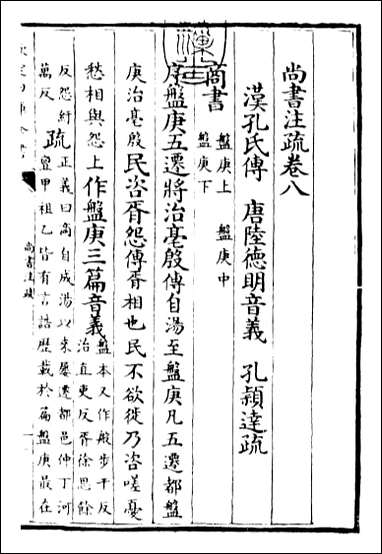 尚書注疏卷八
漢孔氏傳　唐陸德明音義　孔穎達疏
商書
盤庚上　盤庚中
盤庚下
序盤庚五遷將治亳殷傳自湯至盤庚凡五遷都盤
庚治亳殷民咨胥怨傳胥相也民不欲徙乃咨嗟憂
愁相與怨上作盤庚三篇音義
盤本又作般步干反
治直吏反胥徐思餘
反怨紆
萬反
疏
正義曰商自成湯以來屢遷都邑仲丁河
亶甲祖乙皆有言誥歷載於篇盤庚最在
尚書注疏